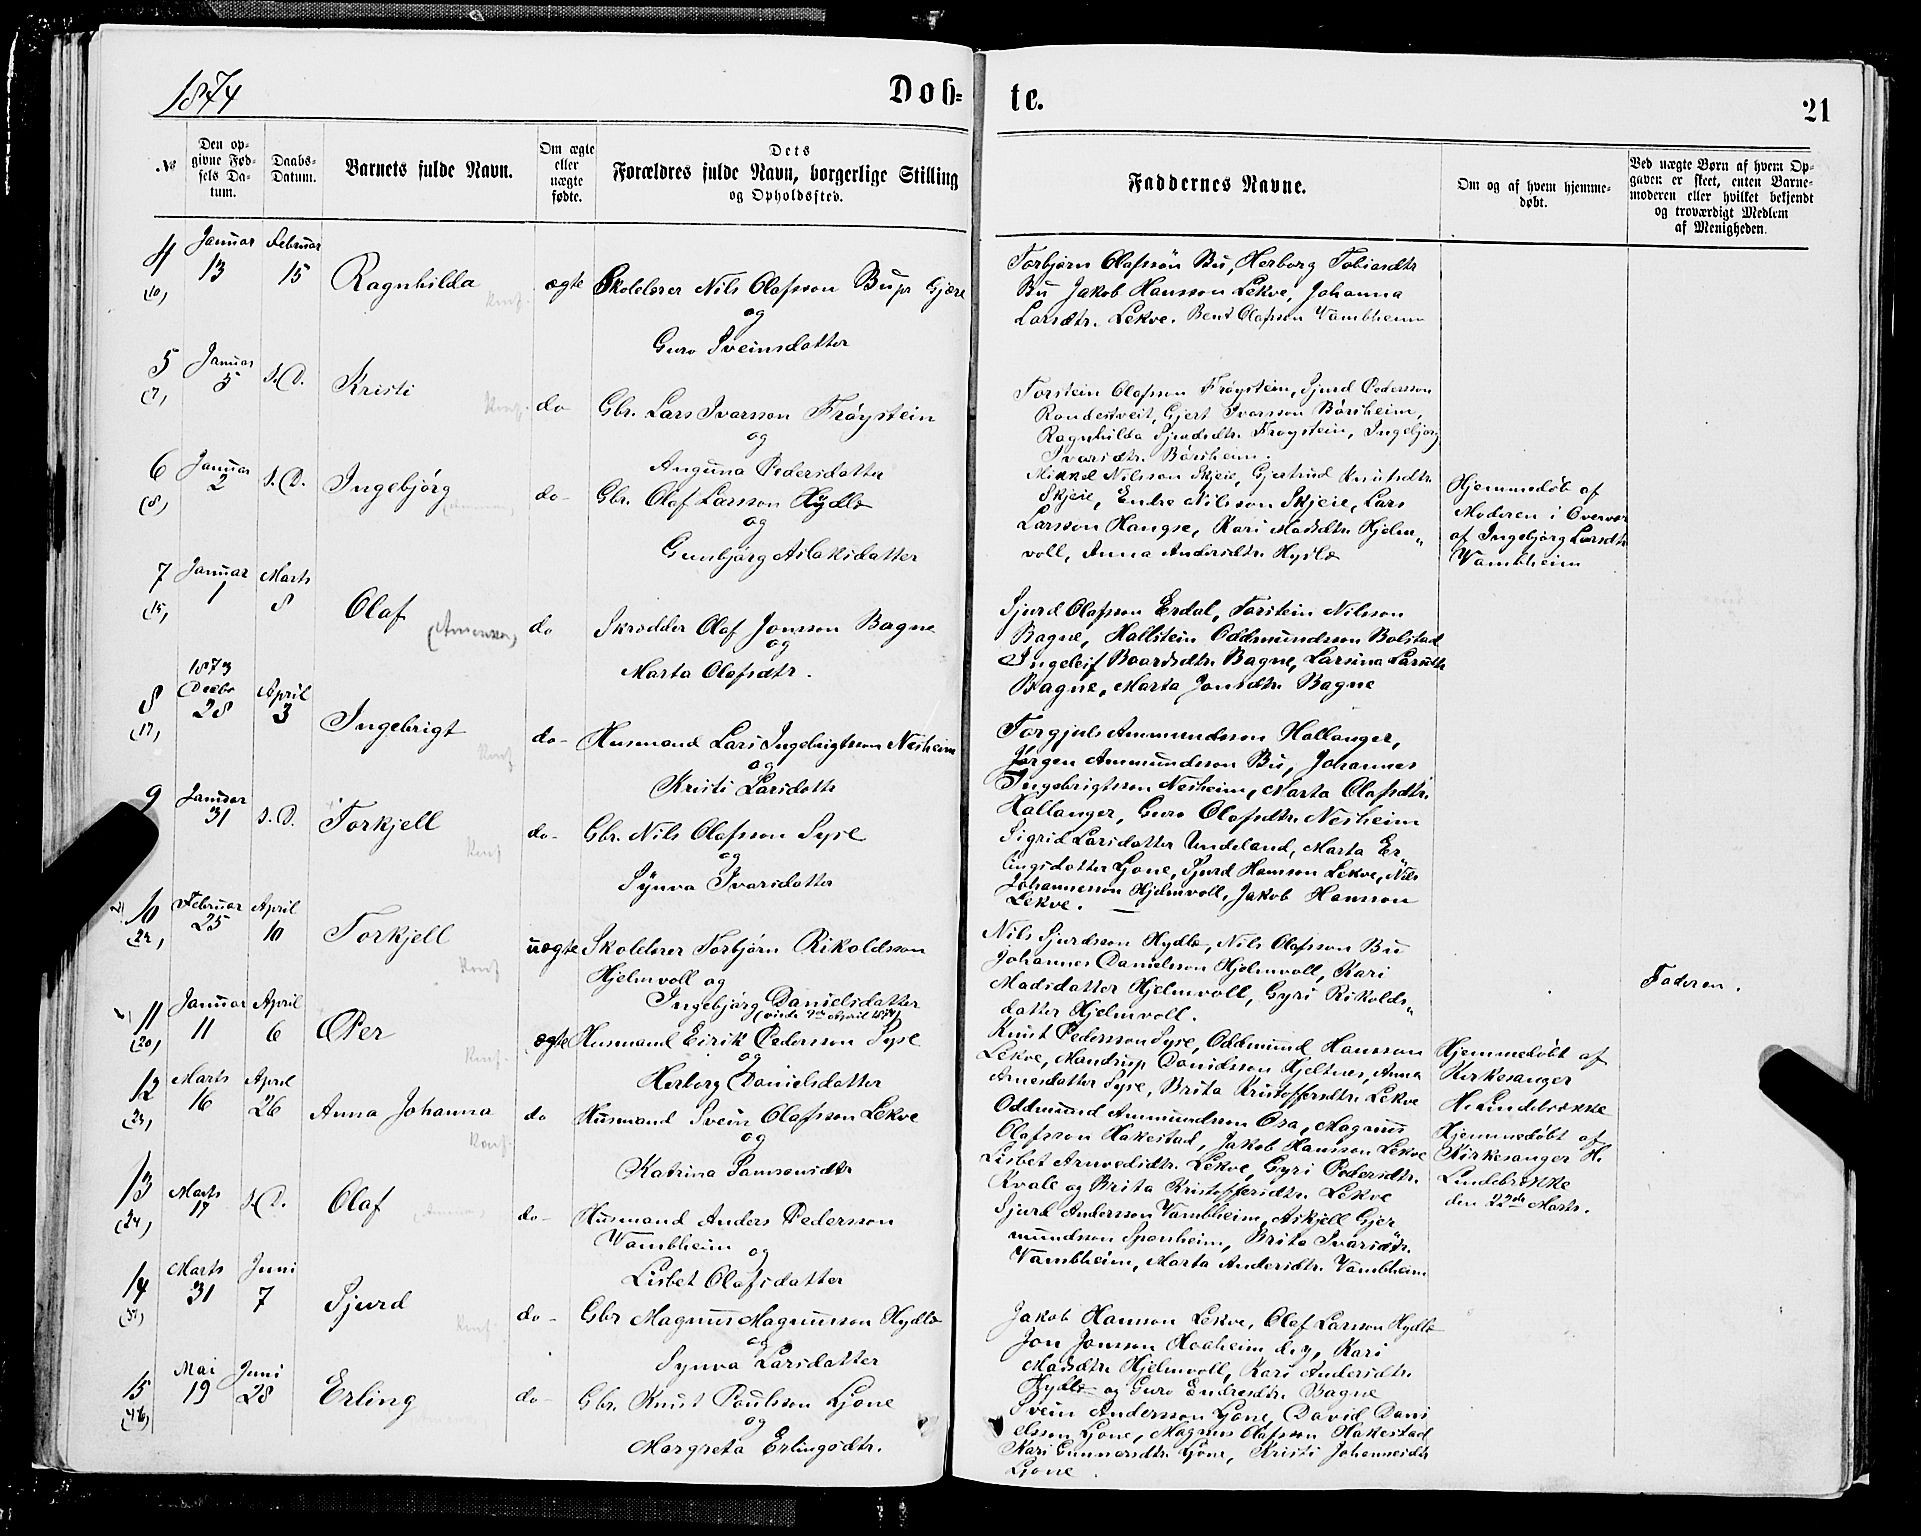 1874
Døb-
te.
21
No
Den op-
givne Fød-
sels Da-
tum.
Daabs-
Datum.
Barnets fulde Navn.
Om ægte
eller
uægte
fødte.
Dets
Forældres fulde Navn, borgerlige Stilling
og Opholdssted.
Faddernes Navne.
Om og af hvem hjemme-
døbt.
Ved uægte Børn af hvem Op-
gaven er skeet, enten Barne-
moderen eller hvilket bekjendt
og troværdigt Medlem
af Menigheden.
4
(10)
Januar
13
Februar
15
Ragnhilda
Konf.
ægte
Skolelærer Nils Olafsson Bu pr Gjære
og
Guro Sveinsdatter
Torbjørn Olafssön Bu, Herborg Tobiasdtr
Bu Jakob Hansson Lekve, Johanna
Larsdtr. Lekve. Bent Olafsson Vambheim
5
(7)
Januar
5
s. D.
Kristi
Konf.
do
Gbr. Lars Ivarsson Frøystein
og
Anguna Pedersdatter
Torstein Olafsson Frøystein, Sjurd Pedersson
Rondestveit, Gjert Ivarsson Børsheim,
Ragnhilda Sjurdsdtr. Frøystein, Ingebjørg
Ivarsdtr. Børsheim.
6
(8)
Januar
2
s. D.
Ingebjørg
do
Gbr. Olaf Larsson Hydle
og
Gunbjørg Aslaksdatter
Mikkel Nilsson Skjeie, Gjertrud Knutsdtr
Skjeie, Endre Nilsson Skjeie, Lars
Larsson Haugse, Kari Madsdtr. Hjelm„
voll, Anna Andersdtr. Hydle
Hjemmedøb af
Moderen i Overvær
af Ingebjørg Larsdtr
Vambheim
7
(15)
Januar
1
Marts
8
Olaf
(Amerika)
do
Skrædder Olaf Jonsson Bagne
og
Marta Olafsdtr.
Sjurd Olafsson Erdal, Torstein Nilsson
Bagne, Hallstein Oddmundsson Bolstad
Ingeleif Baardsdtr. Bagne, Larsina Larsdtr
Bagne, Marta Jonsdtr. Bagne
8
(17)
1873
Decbr
28
April
3
Ingebrigt
Konf
do
Husmand Lars Ingebrigtsson Nesheim
og
Kristi Larsdottr
Torgjuls Ammundsson Hallanger,
Jørgen Ammundsson Bu, Johannes
Ingebrigtsson Nesheim, Marta Olafsdtr.
Hallanger, Guro Olafsdtr. Nesheim
9
Januar
31
s. D.
Torkjell
Konf
do
Gbr. Nils Olafsson Syse
og
Synva Ivarsdatter
Sigrid Larsdatter Undeland, Marta Er„
lingsdatter Ljone, Sjurd Hansson Lekve, Nils
Johannesson Hjelmvoll, Jakob Hansson
Lekve.
10
(22)
Februar
25
April
10
Torkjell
Konf
uægte
Skolelærer Torbjørn Rikoldsson
Hjelmvoll og
Ingebjørg Danielsdatter
(viede 9de April 1874)
Nils Sjurdsson Hydle, Nils Olafsson Bu
Johannes Danielsson Hjelmvoll, Kari
Madsdatter Hjelmvoll, Gyri Rikolds„
datter Hjelmvoll.
Faderen.
11
(20)
Januar
11
April
6
Per
Konf.
ægte
Husmand Eirik Pedersson Syse
og
Herborg Danielsdatter
Knut Pedersson Syse, Oddmund Hansson
Lekve, Mandrup Davidsson Hjeltnes, Anna
Arnesdatter Syse, Brita Kristoffersdtr. Lekve
Hjemmedøbt af
Kirkesanger
H. Lindebrække
12
(23)
Marts
16
April
26
Anna Johanna
Konf.
do
Husmand Svein Olafsson Lekve
og
Katrina Samsonsdtr
Oddmund Ammundsson Osa, Magnus
Olafsson Hakestad, Jakob Hansson Lekve
Lisbet Arnvedsdtr. Lekve, Gyri Pedersdtr.
Kvale og Brita Kristoffersdtr. Lekve
Hjemmedøbt af
Kirkesanger H.
Lindebrække
den 22de Marts.
13
(24)
Marts
17
s. D.
Olaf
do
Husmand Anders Pedersson
Vambheim
og
Lisbet Olafsdatter
Sjurd Andersson Vambheim, Askjell Gjer„
mundsson Sponheim, Brita Ivarsdtr.
Vambheim, Marta Andersdtr. Vambheim
14
(37)
Marts
31
Juni
7
Sjurd
Konf
do
Gbr Magnus Magnusson Hydle
og
Synva Larsdatter
Jakob Hansson Lekve, Olaf Larsson Hydle
Jon Jonsson Hoaheim d.y., Kari
Madsdtr. Hjelmvoll, Kari Andersdtr.
Hydle og Guro Endresdtr. Bagne
15
(46)
Mai
19
Juni
28
Erling
do
Gbr. Knut Poulsson Ljone
og
Margreta Erlingsdtr.
Svein Andersson Ljone, David Dani
elsson Ljone, Magnus Olafsson Hakestad
Kari Gunnarsdtr. Ljone, Kristi Johannesdtr
Ljone.